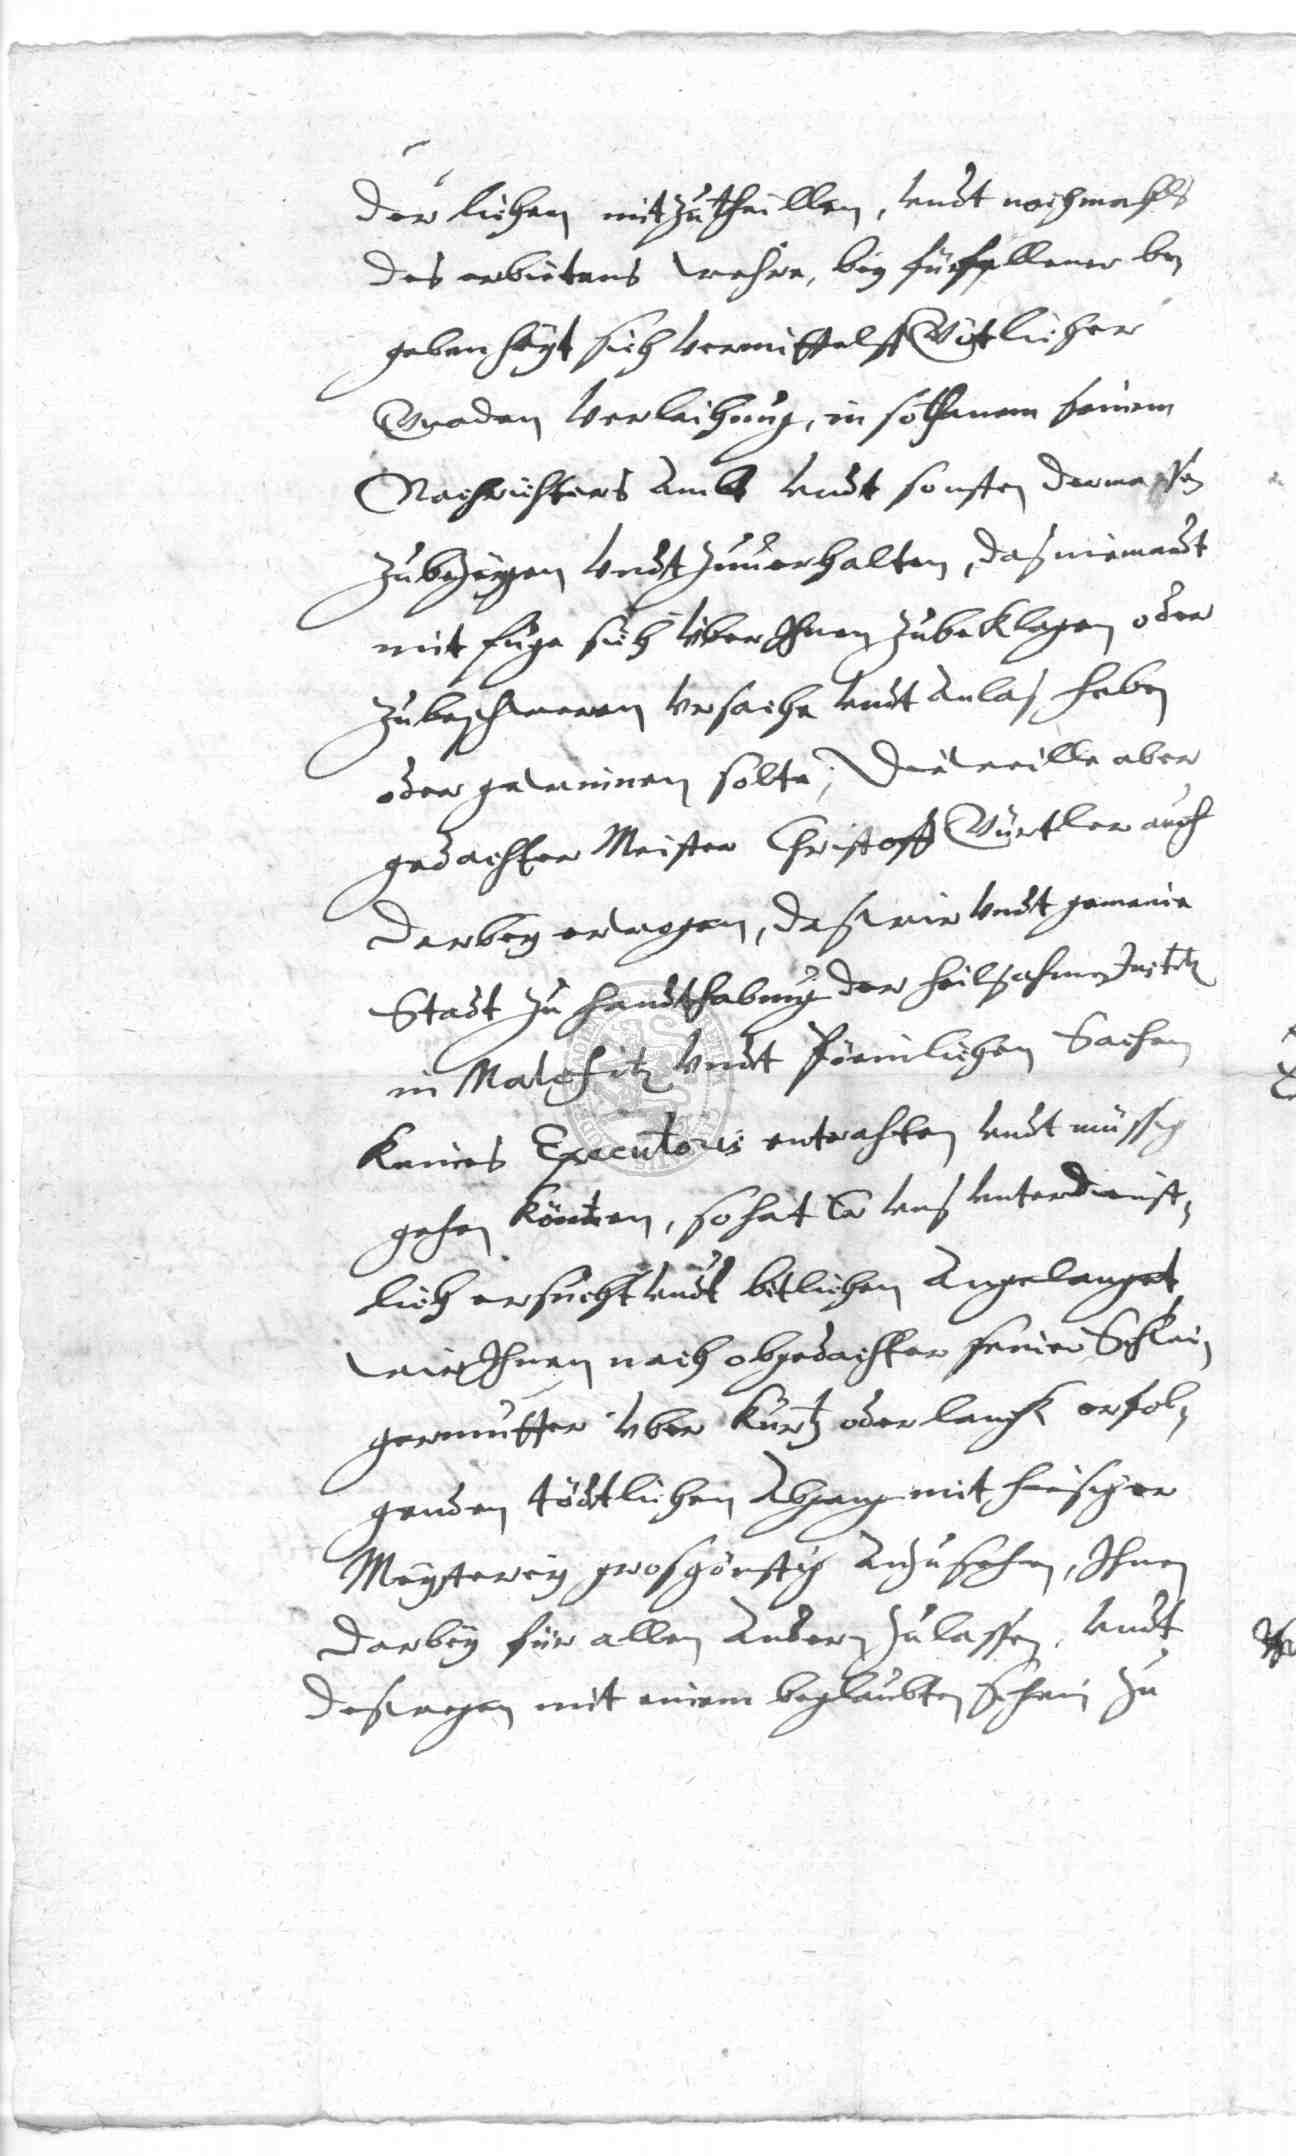 derlichen mitzutheillen, vndt nochmahls
des erbietens wehre, bey fürfallener be,
gebenheyt sich vermittelst Götlicher
Gnaden verleihung, in sothanem seinem
Nachrichters Ambt vndt sonsten dermassen
zubezeigen vndt zuuerhalten, das niemandt
mit fuge sich vber Ihnen zubeklagen oder
zubeschweren vrsache vndt anlas haben
oder gewinnen solte; Dieweille aber
gedachter Meister Christoff Gürtler auch
darbey erwogen, das wir vndt gemeine
Stadt zu handthabung der heilsahmen Justitz
in Malefitz vndt peinlichen Sachen
keines Executoris entrahten vndt müssig
gehen könten, so hat Er vns vnterdienst,
lich ersucht vndt bitlichen angelanget,
wir Ihnen nach obgedachter seiner Schwie,
germutter vber kurtz oder langk erfol,
genden tödtlichen Abgang mit hiesiger
Meysterey grosgünstig anzusehen, Ihnen
darbey für allen Andern zulassen, vndt
deswegen mit einem beglaubten schein zu